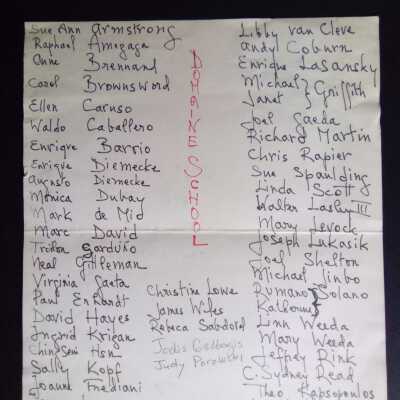 Sue Ann Armstrong
Raphael Amogaga
Anne Brennand
Carol Brownsword
Ellen Caruso
Waldo Caballero
Enrique Barrio
Enrique Diemecke
Augusto Diemecke
Monica Dubay
Mark de Mid
Marc David
Tridon Garduño
Neal Gittleman
Virginia Gaeta
Paul Erhardt
David Hayes
Ingrid Krigan
Ching Sen Hsn
Sally Kopf
Joanne Frediani
DOMAINE SCHOOL
Christine Lowe
James Wiles
Rebeca Sabdovel
Judy
Libby van Cleve
Andy Coburn
Enrique Lasansky
Michael } Griffith
Janet
Joel Gaeda
Richard Martin
Chris Rapier
Sue Spaulding
Linda Scott
Walter Lasley III
Mary Levock
Joseph Lukasik
Joel Shelton
Michael Jinbo
Rumano } Solano
Katherine
Linn Weeda
Mary Weeda
Jeffrey Rink
C. Sydney Read
Theo Kapsopoulos